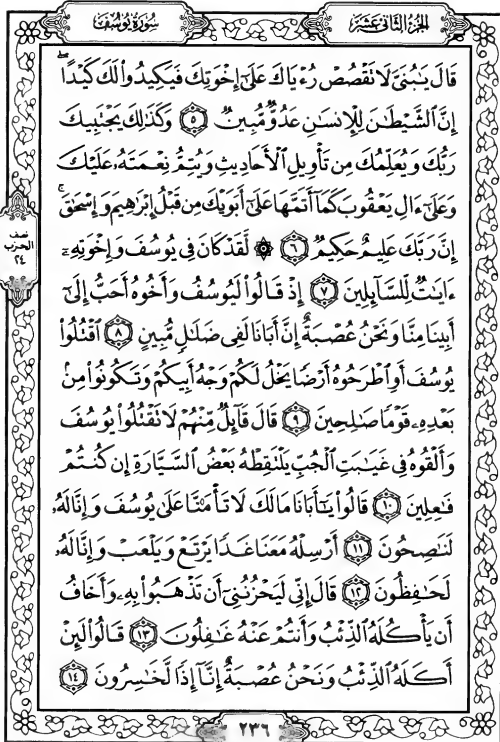 الجزء الثاني عشر
سورة يوسف
قَالَ يَٰبُنَيَّ لَا تَقْصُصْ رُءْيَاكَ عَلَىٰٓ إِخْوَتِكَ فَيَكِيدُوا۟ لَكَ كَيْدًا ۖ
إِنَّ ٱلشَّيْطَٰنَ لِلْإِنسَٰنِ عَدُوٌّ مُّبِينٌ ٥ وَكَذَٰلِكَ يَجْتَبِيكَ
رَبُّكَ وَيُعَلِّمُكَ مِن تَأْوِيلِ ٱلْأَحَادِيثِ وَيُتِمُّ نِعْمَتَهُۥ عَلَيْكَ
وَعَلَىٰٓ ءَالِ يَعْقُوبَ كَمَآ أَتَمَّهَا عَلَىٰٓ أَبَوَيْكَ مِن قَبْلُ إِبْرَٰهِيمَ وَإِسْحَٰقَ ۚ
إِنَّ رَبَّكَ عَلِيمٌ حَكِيمٌ ٦ ۞ لَّقَدْ كَانَ فِي يُوسُفَ وَإِخْوَتِهِۦٓ
ءَايَٰتٌ لِّلسَّآئِلِينَ ٧ إِذْ قَالُوا۟ لَيُوسُفُ وَأَخُوهُ أَحَبُّ إِلَىٰٓ
أَبِينَا مِنَّا وَنَحْنُ عُصْبَةٌ إِنَّ أَبَانَا لَفِي ضَلَٰلٍ مُّبِينٍ ٨ ٱقْتُلُوا۟
يُوسُفَ أَوِ ٱطْرَحُوهُ أَرْضًا يَخْلُ لَكُمْ وَجْهُ أَبِيكُمْ وَتَكُونُوا۟ مِنۢ
بَعْدِهِۦ قَوْمًا صَٰلِحِينَ ٩ قَالَ قَآئِلٌ مِّنْهُمْ لَا تَقْتُلُوا۟ يُوسُفَ
وَأَلْقُوهُ فِي غَيَٰبَتِ ٱلْجُبِّ يَلْتَقِطْهُ بَعْضُ ٱلسَّيَّارَةِ إِن كُنتُمْ
فَٰعِلِينَ ١٠ قَالُوا۟ يَٰٓأَبَانَا مَا لَكَ لَا تَأْمَ۫نَّا عَلَىٰ يُوسُفَ وَإِنَّا لَهُۥ
لَنَٰصِحُونَ ١١ أَرْسِلْهُ مَعَنَا غَدًا يَرْتَعْ وَيَلْعَبْ وَإِنَّا لَهُۥ
لَحَٰفِظُونَ ١٢ قَالَ إِنِّي لَيَحْزُنُنِيٓ أَن تَذْهَبُوا۟ بِهِۦ وَأَخَافُ
أَن يَأْكُلَهُ ٱلذِّئْبُ وَأَنتُمْ عَنْهُ غَٰفِلُونَ ١٣ قَالُوا۟ لَئِنْ
أَكَلَهُ ٱلذِّئْبُ وَنَحْنُ عُصْبَةٌ إِنَّآ إِذًا لَّخَٰسِرُونَ ١٤
نصف
الحزب
٢٤
٢٣٦